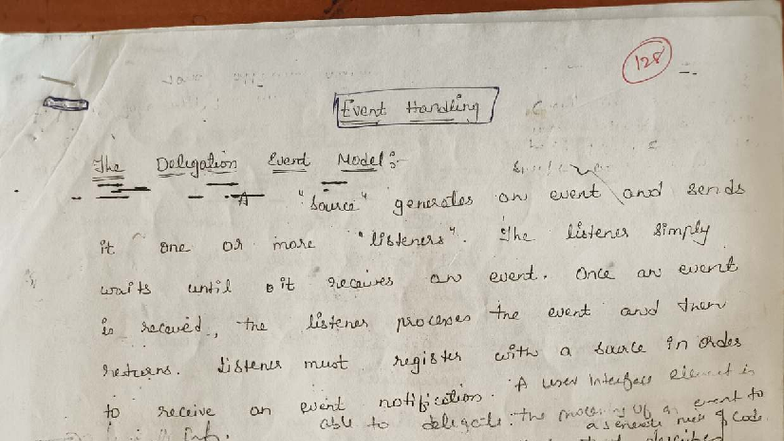 128
Event Handling
The Deligation Event Model:-
A "source" generates an event and sends
it one or more "listeners". The listener simply
waits until it receives an event. Once an event
is received, the listener processes the event and then
returns. Listener must register with a source in order
to receive an event notification. A user interface element is
able to deligate the processing of an event to
a seperate piece of code.